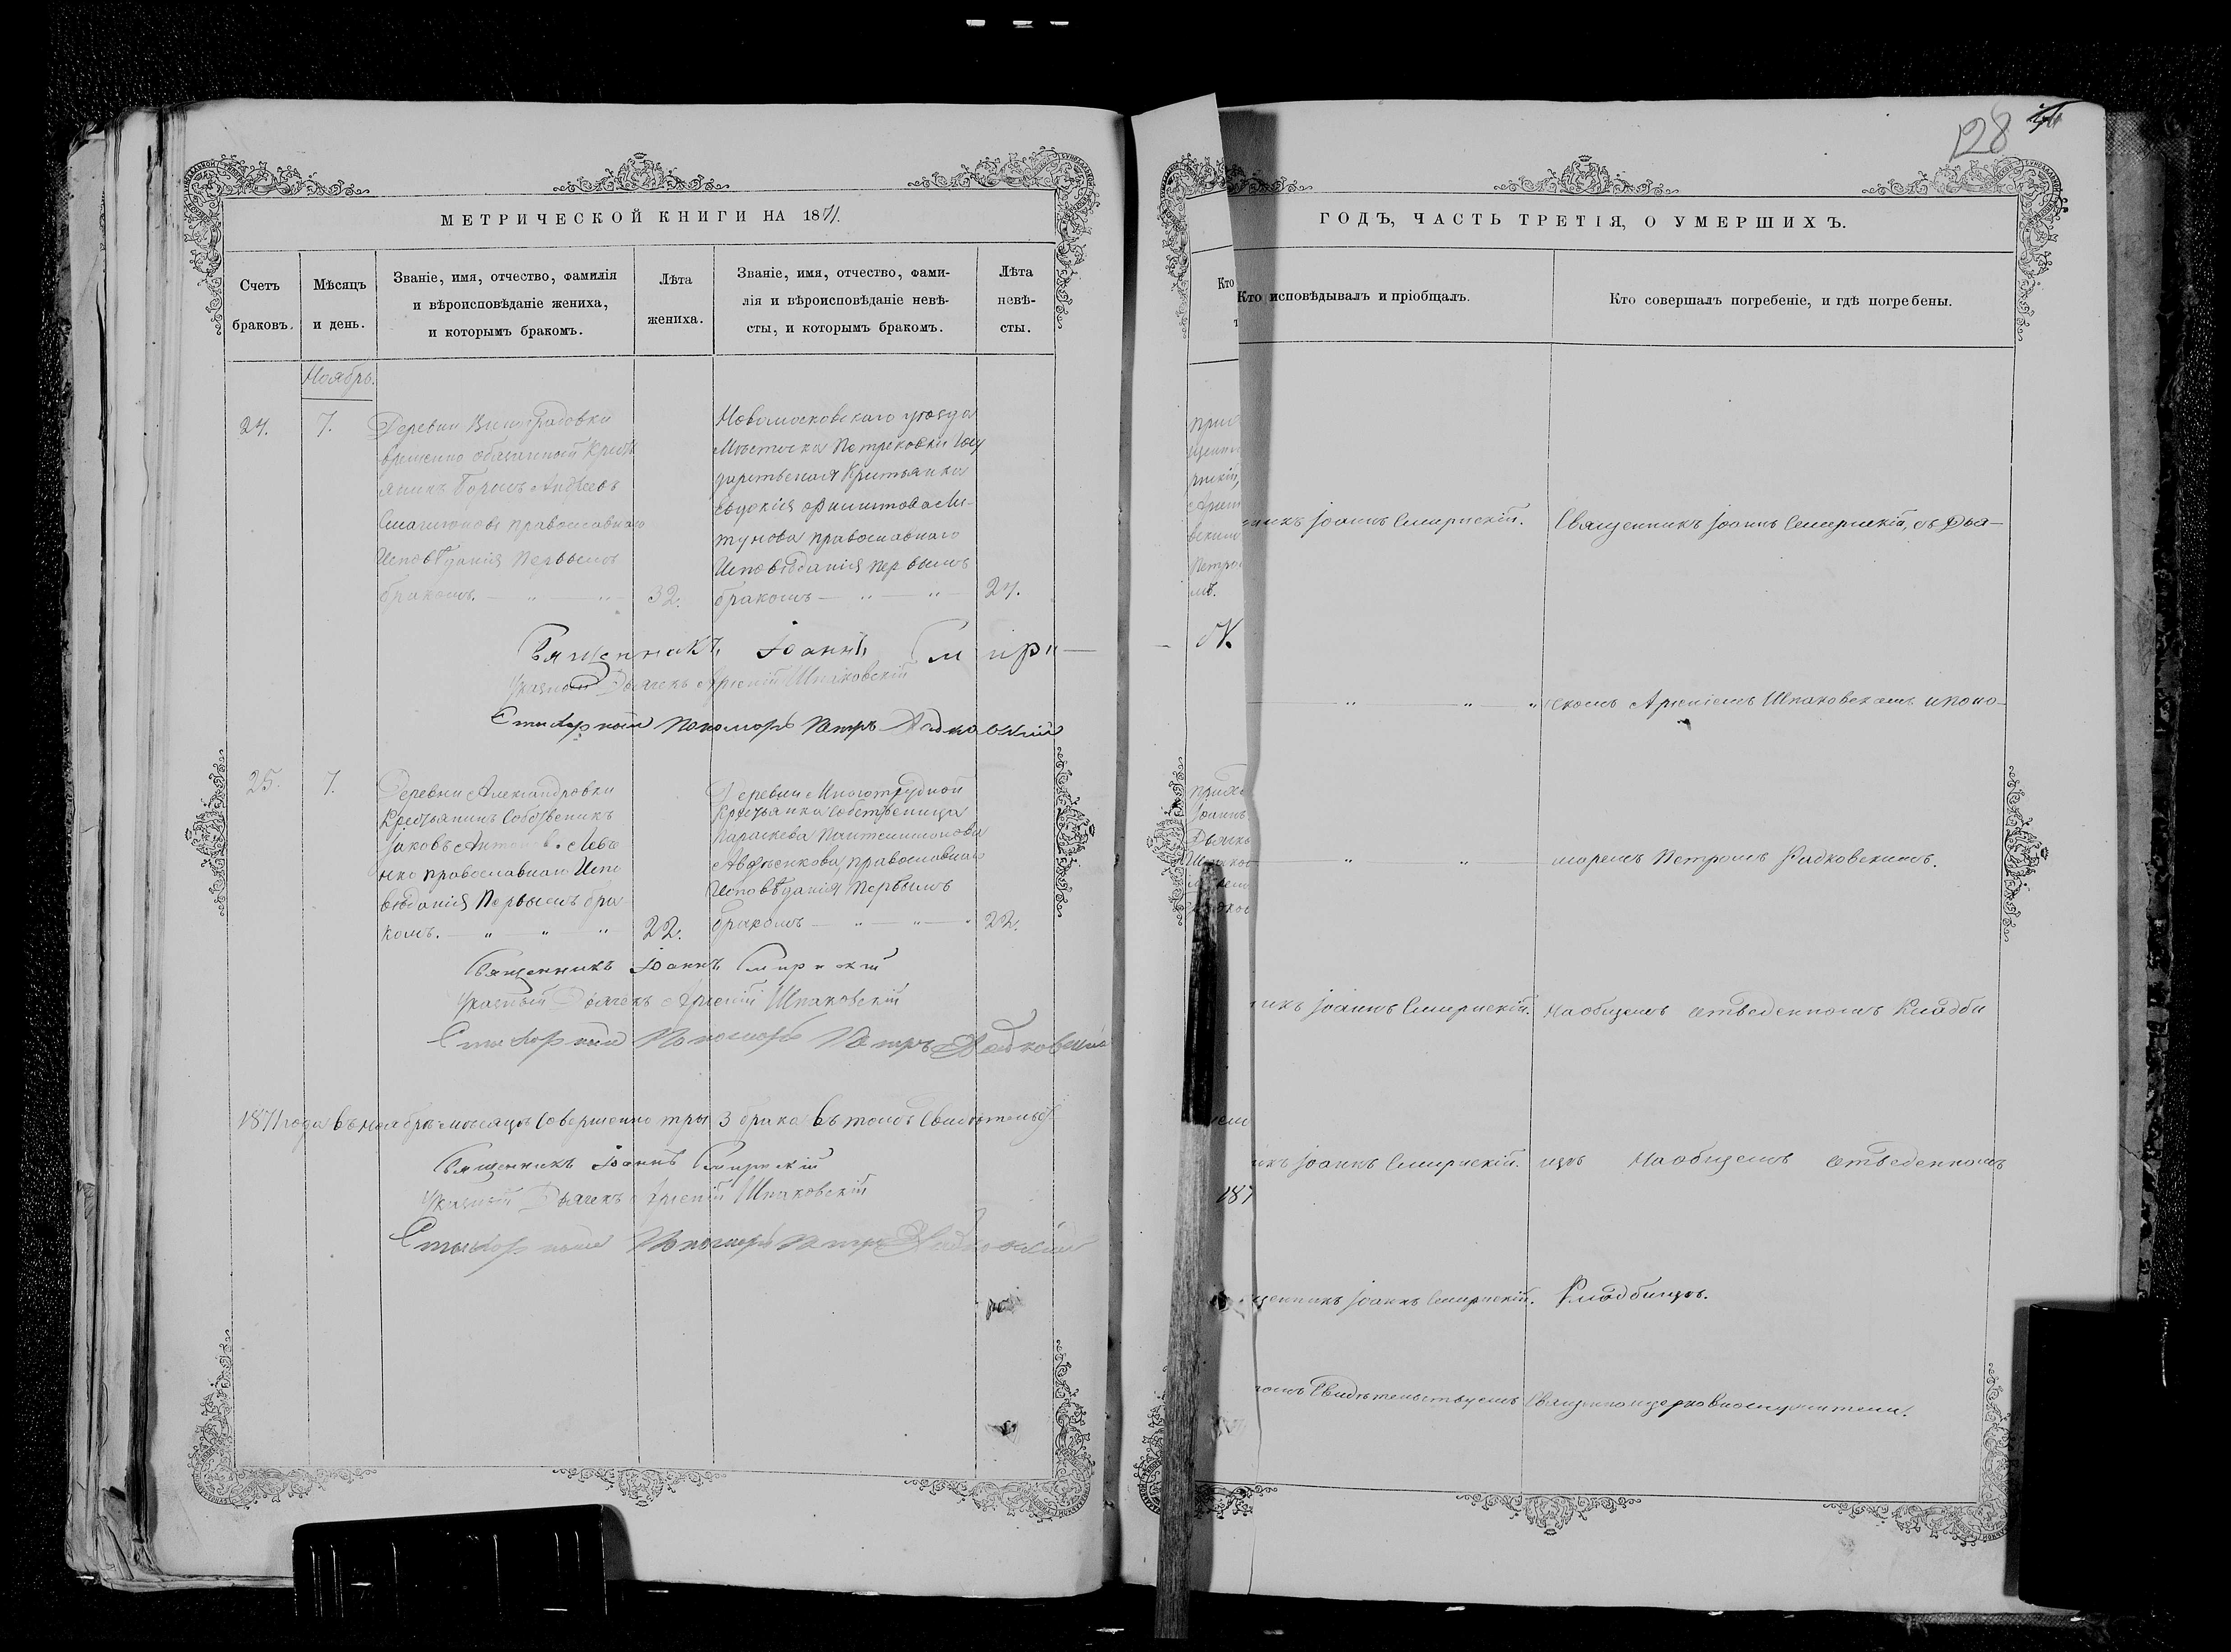 128
МЕТРИЧЕСКОЙ КНИГИ НА 1871.
Счетъ браковъ.
Мѣсяцъ и день.
Званіе, имя, отчество, фамилія
и вѣроисповѣданіе жениха,
и которымъ бракомъ.
Лѣта жениха.
Званіе, имя, отчество, фами-
лія и вѣроисповѣданіе невѣ-
сты, и которымъ бракомъ.
Лѣта невѣ-
сты.
Ноябрь.
24.
7.
Деревни Виноградовки
временно обязанный Крест
янинъ
православнаго
Исповѣданія Первымъ
бракомъ. — " — " —
32.
Новомосковскаго уѣзда
Мѣстечка Петриковки Госу
дарственая Крестьянка
Евдокія
православнаго
Исповѣданія первымъ
бракомъ — " — " —
24.
Священникъ Іоаннъ Смирн—
Указный Дьячекъ Арсеній Шпаковскій
Стихарный Пономарь Петръ Радковскій
25.
7.
Деревни Александровки
Крестьянинъ Собственикъ
Іаковъ
православнаго Испо
вѣданія Первымъ бра
комъ. — " " "
22.
Деревни Многотрудной
Крестьянка Собственица
Параскева Пантелимонова
Авдѣенкова, православнаго
Исповѣданія Первымъ
бракомъ — " — " — "
22.
Священникъ Іоаннъ Смирнскій
Указный Дьячекъ Арсеній Шпаковскій
Стихарный Пономарь Петръ Радковскій
1871 года въ ноябрѣ мѣсяцѣ Совершенно три 3 брака въ томъ
Священникъ Іоаннъ Смирнскій
Указный Дьячекъ Арсеній Шпаковскій
Стихарный Пономарь Петръ Радковскій
ГОДЪ, ЧАСТЬ ТРЕТІЯ, О УМЕРШИХЪ.
Кто
Кто исповѣдывалъ и пріобщалъ.
Кто совершалъ погребеніе, и гдѣ погребены.
никъ Іоаннъ Смирнскій.
Священникъ Іоаннъ Смирнскій, съ Дья—
" " "
чкомъ Арсеніемъ Шпаковскимъ и поно—
" "
маремъ Петромъ Радковскимъ.
никъ Іоаннъ Смирнскій.
На общемъ отведенномъ Кладби
икъ Іоаннъ Смирнскій.
щѣ На общемъ отведенномъ
187
щенникъ Іоаннъ Смирнскій.
Кладбищѣ.
томъ Свидѣтельствуемъ Священноцерковнослужители.